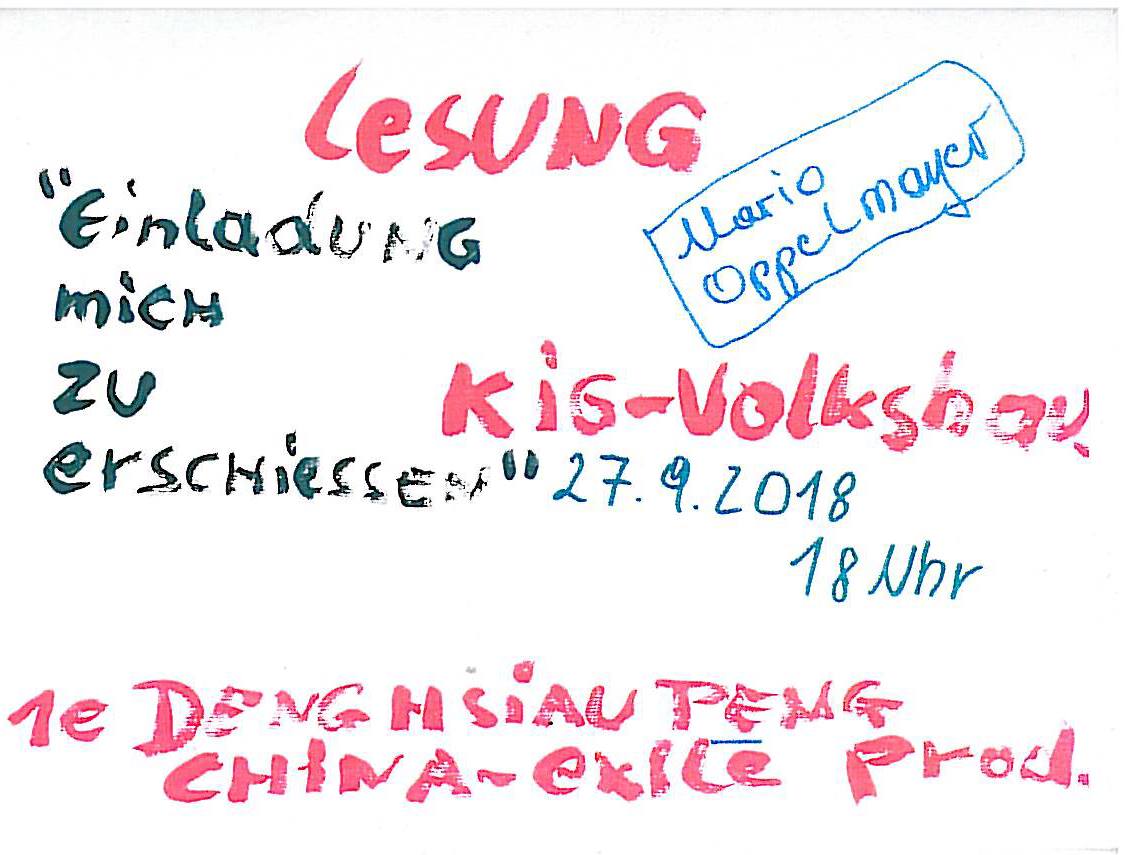 LESUNG
Mario
Oppelmayer
"Einladung
mich
zu
erschiessen"
KiG-Volkshau
27.9.2018
18 Uhr
1e DENG HSiAU PENG
CHINA-exile Prod.